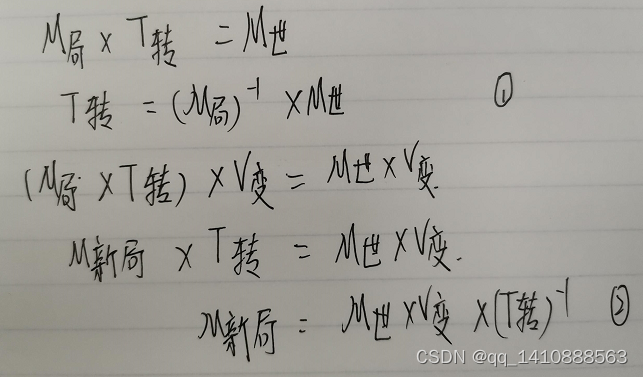 M局 × T转 = M世
T转 = (M局)⁻¹ × M世 ①
(M局 × T转) × V变 = M世 × V变.
M新局 × T转 = M世 × V变.
M新局 = M世 × V变 × (T转)⁻¹ ②
CSDN @qq_1410888563